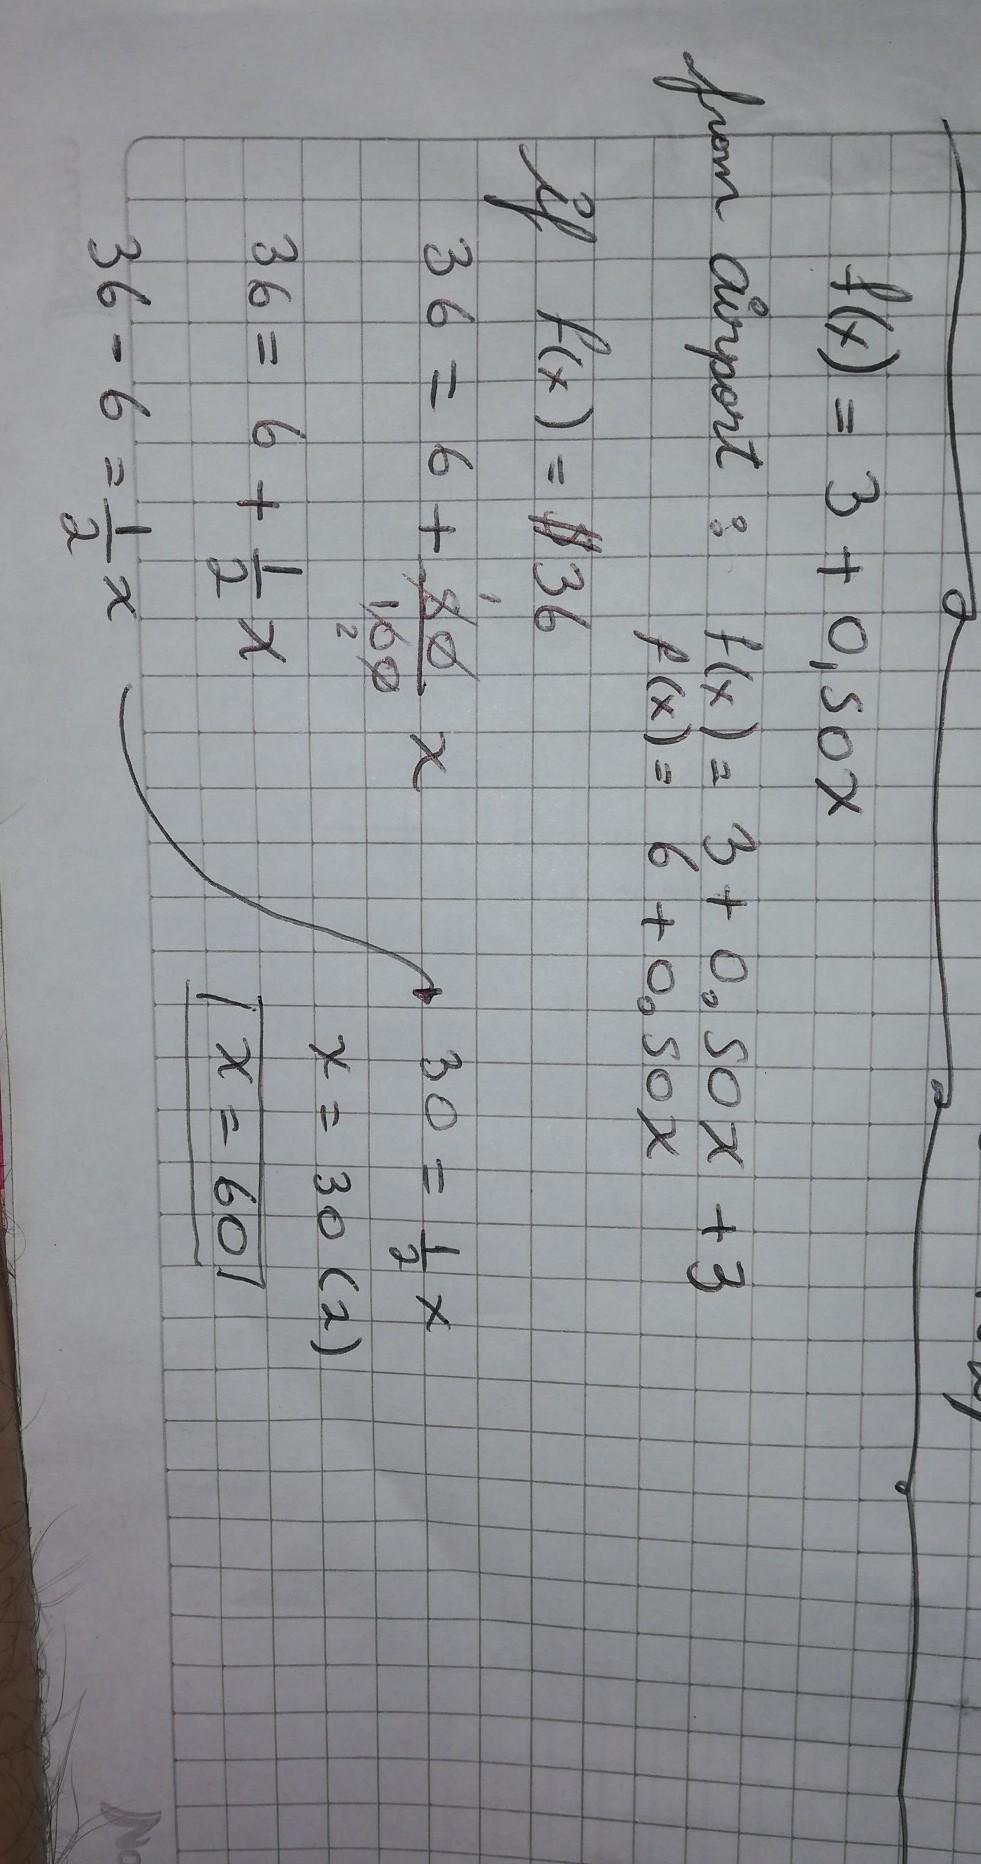 f(x) = 3 + 0,50x
from airport : f(x) = 3 + 0,50x + 3
f(x) = 6 + 0,50x
if f(x) = 36
36 = 6 + 50/100 x
36 = 6 + 1/2 x
36 - 6 = 1/2 x
30 = 1/2 x
x = 30 (2)
x = 60